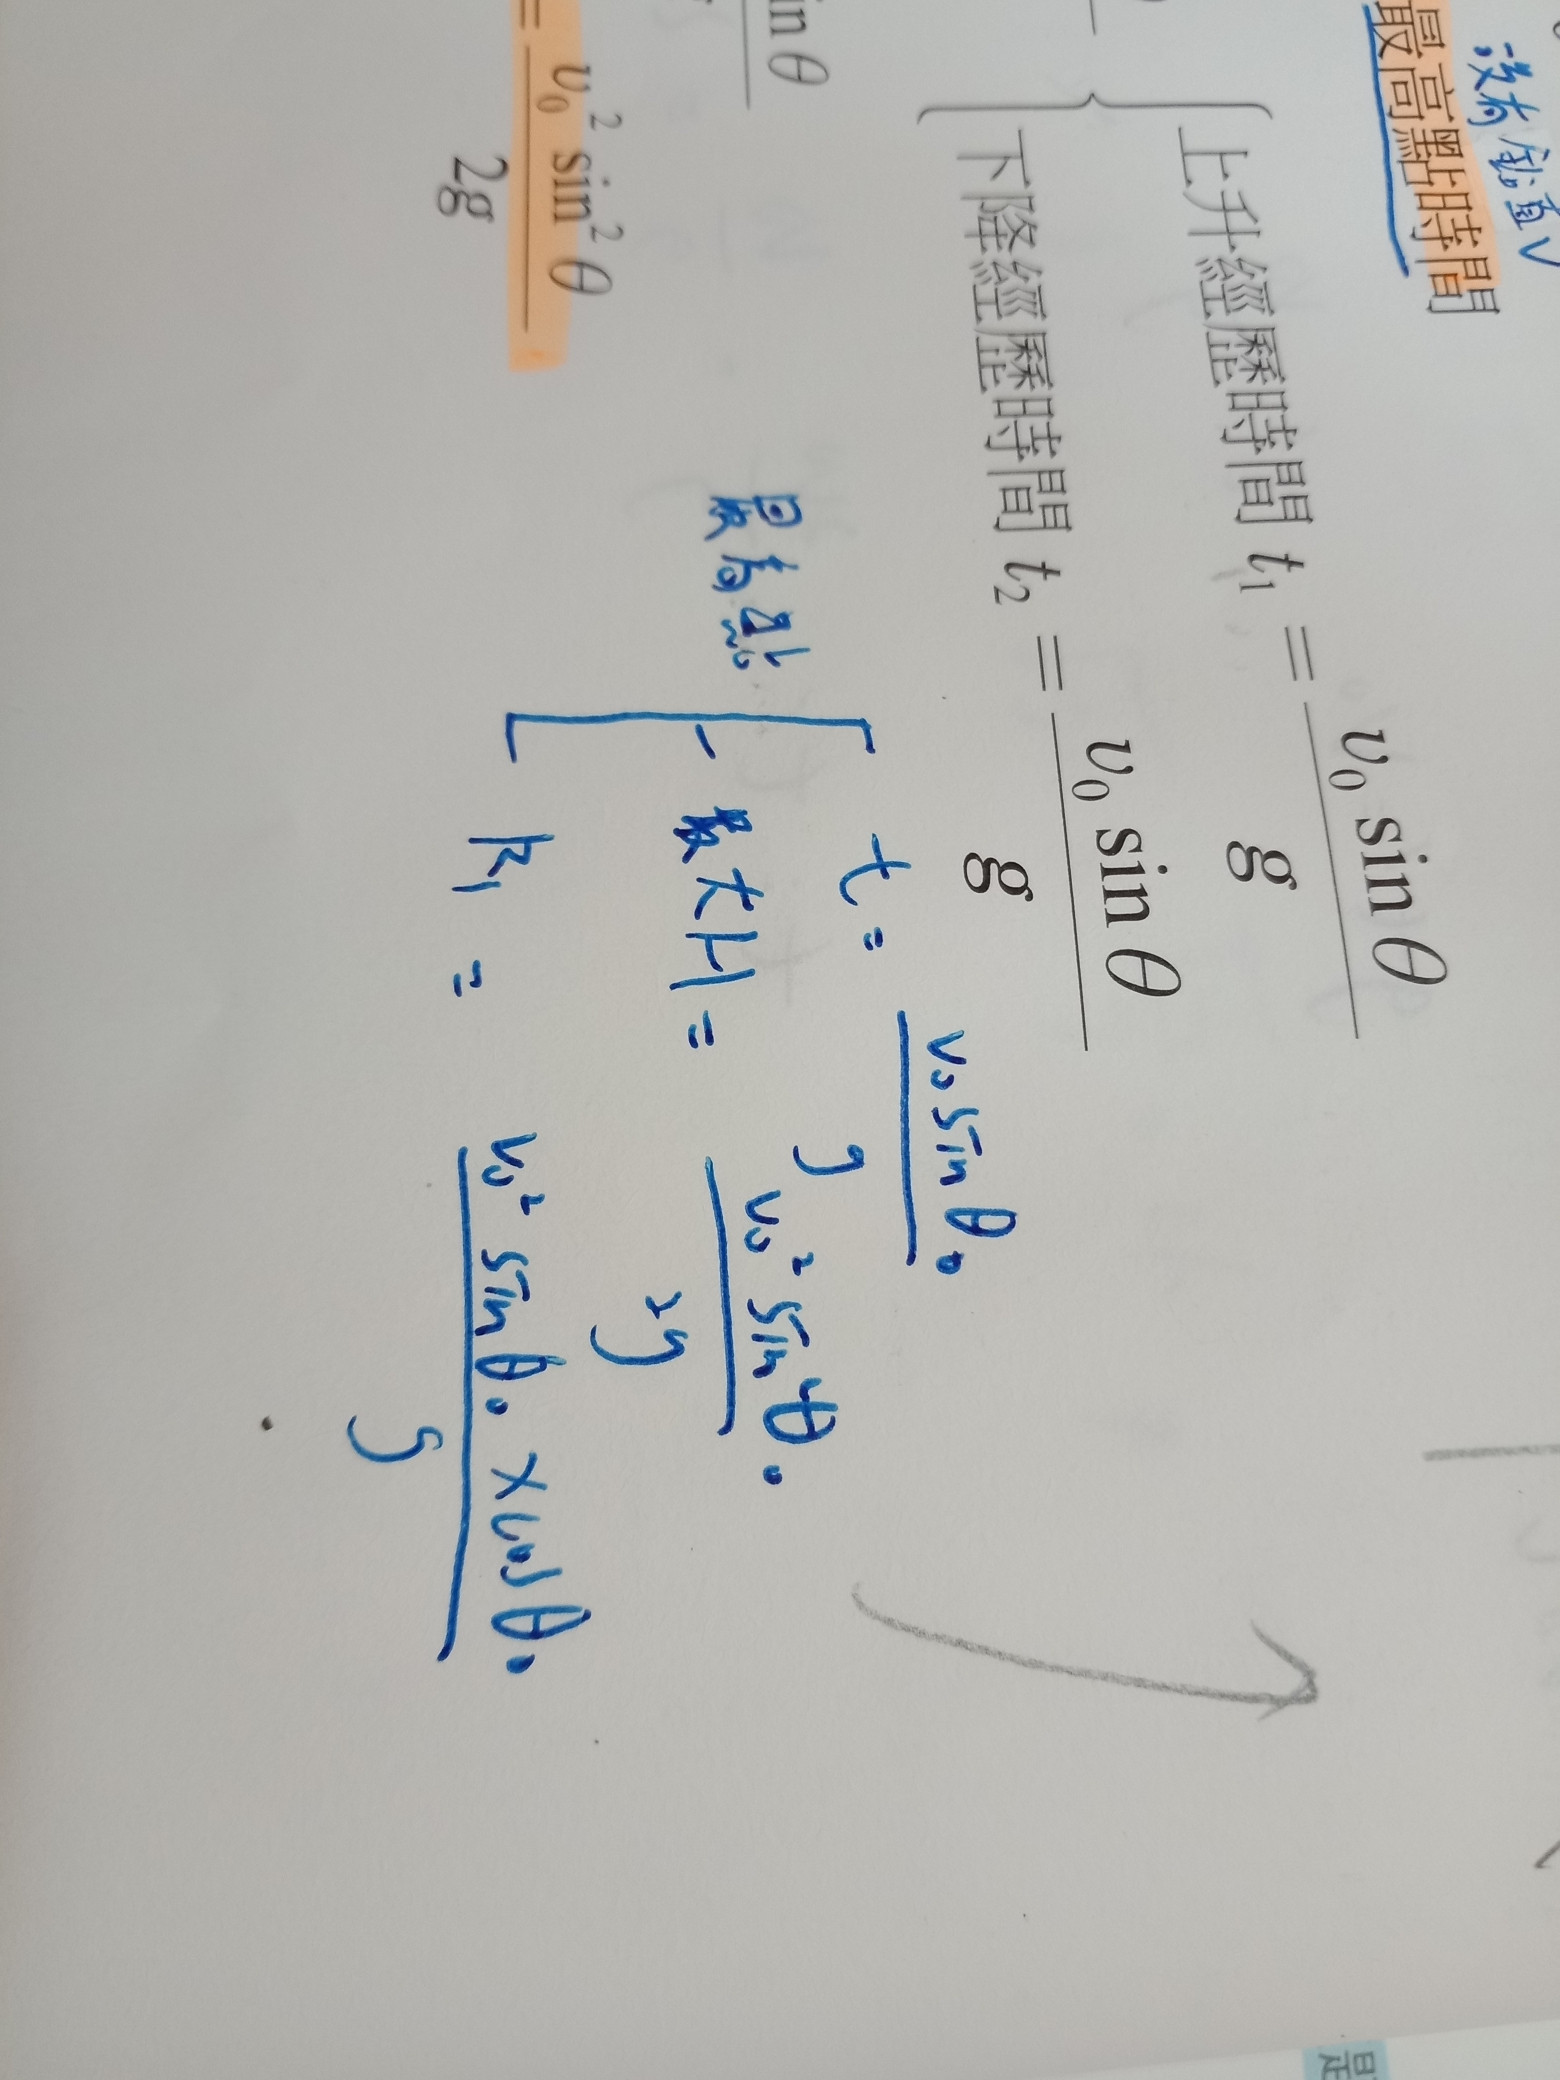 沒有鉛直V
最高點時間
上升經歷時間 t₁ = v₀ sin θ / g
下降經歷時間 t₂ = v₀ sin θ / g
in θ
= v₀² sin² θ / 2g
最高點
t = v₀ sin θ₀ / g
最大H = v₀² sin²θ₀ / 2g
R₁ = v₀² sin θ₀ × cos θ₀ / g